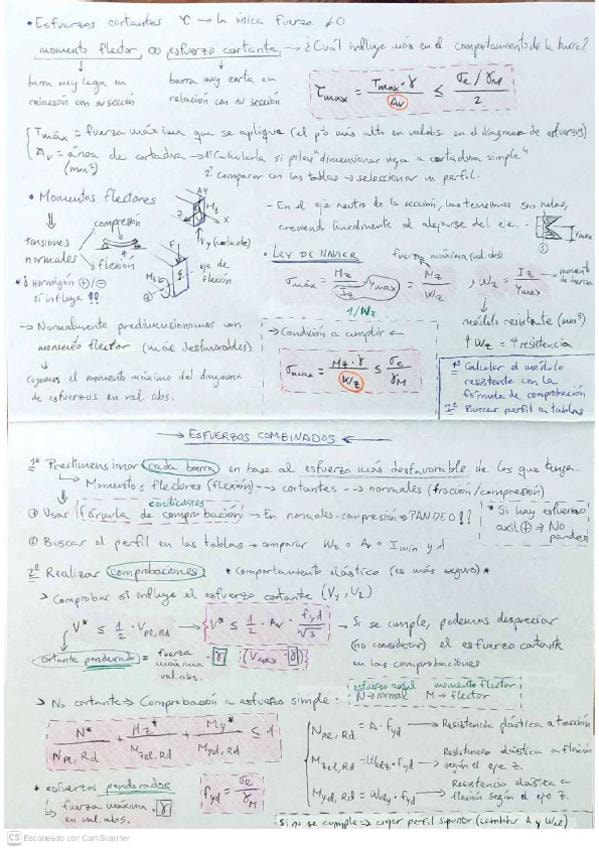 • Esfuerzos cortantes τ → la única fuerza ≠ 0
momento flector ∞ esfuerzo cortante → ¿Cuál influye más en el comportamiento de la barra?
barra muy larga en relación con su sección
barra muy corta en relación con su sección
τmax = Tmax · γ / Av ≤ σe / γM / 2
Tmáx = fuerza máxima que se aplique (el pto más alto en valabs. en el diagrama de esfuerzos)
Av = área de cortadura → 1º Calcularla si piden "dimensionar viga a cortadura simple"
(mm²) 2º comparar con las tablas → seleccionar un perfil.
• Momentos flectores
compresión
tensiones normales
flexión
Mz
x
Vy (cortante)
eje de flexión
* ¡ Hormigón ⊕/⊖
si influye !!
- En el eje neutro de la sección, las tensiones son nulas,
creciendo linealmente al alejarse del eje.
Ymax
• LEY DE NAVIER
fuerza máxima (val. abs)
σmáx = Mz / Iz · Ymax = Mz / Wz , Wz = Iz / Ymax → momento de inercia
1/Wz
módulo resistente (mm³)
↑ Wz = ↑ resistencia
→ Normalmente predimensionamos con
momento flector (más desfavorables)
Cogemos el momento máximo del diagrama
de esfuerzos en val. abs.
→ Condición a cumplir ←
σmax = Mz · γ / Wz ≤ σe / γM
1º Calcular el módulo
resistente con la
fórmula de comprobación
2º Buscar perfil en tablas
→ ESFUERZOS COMBINADOS ←
1º Predimensionar cada barra en base al esfuerzo más desfavorable de los que tenga.
Momentos flectores (flexión) --> cortantes --> normales (tracción/compresión)
condiciones
① Usar fórmula de comprobación → En normales-compresión → PANDEO !!
* Si hay esfuerzo
axil ⊕ → No
pandeo
② Buscar el perfil en las tablas → comparar W o A o Imin y λ
2º Realizar comprobaciones * Comportamiento elástico (es más seguro) *
> Comprobar si influye el esfuerzo cortante (Vy, Vz)
V* ≤ 1/2 · Vpl,Rd → V* ≤ 1/2 · Av · fyd / √3 → Si se cumple, podemos despreciar
(no considerar) el esfuerzo cortante
en las comprobaciones
cortante ponderado = fuerza máxima val.abs. · γ (Vmax · γ)
> No cortante → Comprobación a esfuerzo simple:
esfuerzo axial momento flector
N → normal M → flector
N* / Npl,Rd + Mz* / Mzel,Rd + My* / Myel,Rd ≤ 1
Npl,Rd = A · fyd → Resistencia plástica a tracción
Mzel,Rd = Welz · fyd → Resistencia elástica a flexión
según el eje z.
Myel,Rd = Wely · fyd → Resistencia elástica a
flexión según el eje z.
* esfuerzos ponderados
↳ fuerza máxima · γ
en val. abs.
fyd = σe / γM
Si no se cumple → coger perfil superior (cambiar A y Wel)
CS Escaneado con CamScanner